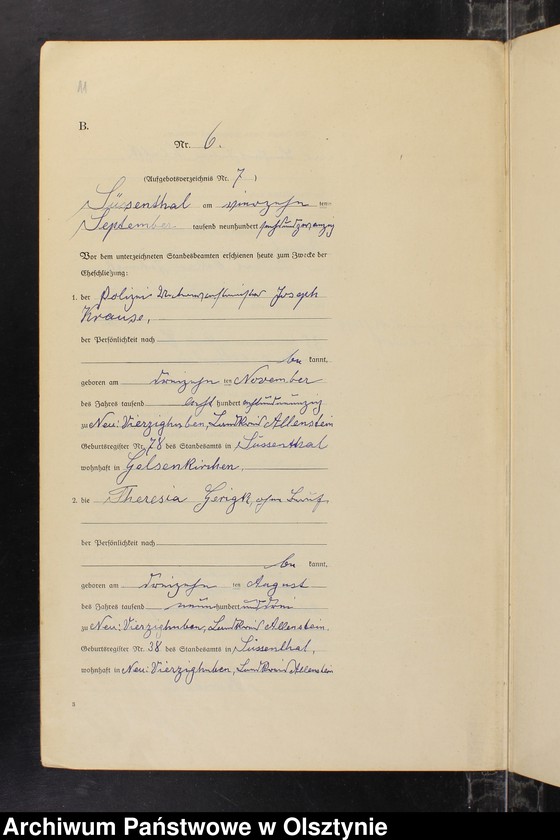 11
B.
Nr. 6.
(Aufgebotsverzeichnis Nr. 7)
Süssenthal am vierzehn ten
September tausend neunhundert sechsundzwanzig
Vor dem unterzeichneten Standesbeamten erschienen heute zum Zwecke der
Eheschließung:
1. der Polizei Unterwachtmeister Joseph
Krause,
der Persönlichkeit nach
be kannt,
geboren am dreizehn ten November
des Jahres tausend acht hundert achtundneunzig
zu Neu-Vierzighuben, Landkreis Allenstein
Geburtsregister Nr. 78 des Standesamts in Süssenthal
wohnhaft in Gelsenkirchen.
2. die Theresia Gerigk, ohne Beruf,
der Persönlichkeit nach
be kannt,
geboren am dreizehn ten August
des Jahres tausend neun hundert und drei
zu Neu-Vierzighuben, Landkreis Allenstein
Geburtsregister Nr. 38 des Standesamts in Süssenthal,
wohnhaft in Neu-Vierzighuben, Landkreis Allenstein
Archiwum Państwowe w Olsztynie